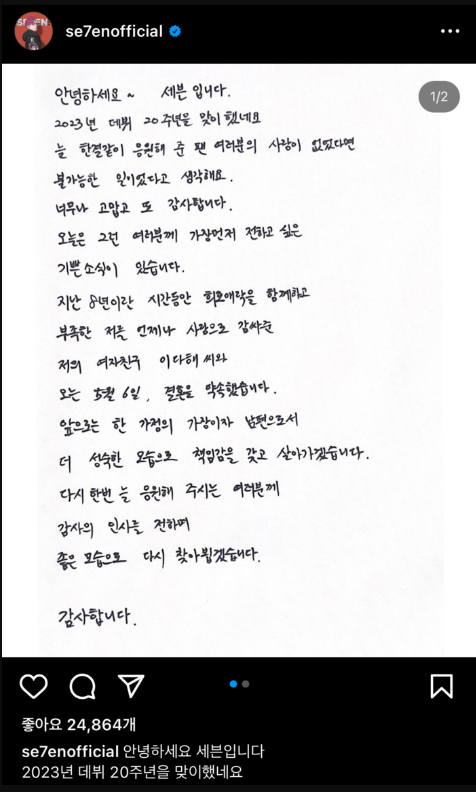 SE7EN
se7enofficial
1/2
안녕하세요~ 세븐 입니다.
2023년 데뷔 20주년을 맞이했네요
늘 한결같이 응원해 준 팬 여러분의 사랑이 없었다면
불가능한 일이었다고 생각해요.
너무나 고맙고 또 감사합니다.
오늘은 그런 여러분께 가장먼저 전하고 싶은
기쁜소식이 있습니다.
지난 8년이란 시간동안 희노애락을 함께하고
부족한 저를 언제나 사랑으로 감싸준
저의 여자친구 이다해 씨와
오는 5월 6일, 결혼을 약속했습니다.
앞으로는 한 가정의 가장이자 남편으로서
더 성숙한 모습으로 책임감을 갖고 살아가겠습니다.
다시한번 늘 응원해 주시는 여러분께
감사의 인사를 전하며
좋은 모습으로 다시 찾아뵙겠습니다.
감사합니다.
좋아요 24,864개
se7enofficial 안녕하세요 세븐입니다
2023년 데뷔 20주년을 맞이했네요